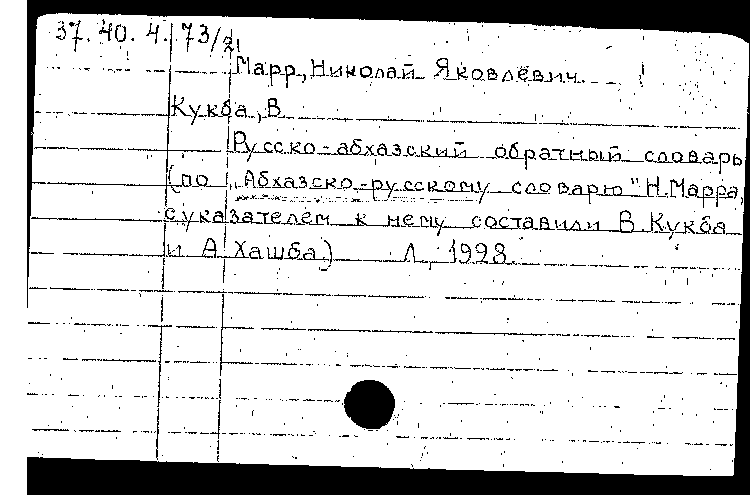 37.40.4.73/21
Марр, Николай Яковлевич.
Кукба, В.
Русско-абхазский обратный словарь
(по „Абхазско-русскому словарю" Н.Марра,
с указателем к нему составили В.Кукба
и А Хашба) Л., 1928.